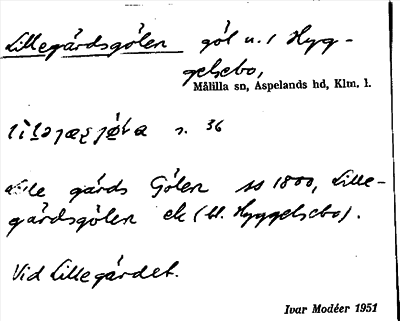 Lillegårdsgölen göl n. i Hyg-
gelsebo,
Målilla sn, Aspelands hd, Klm. l.
s. 36
Lille gårds Gölen ss 1800, Lille-
gårdsgölen ek (bl. Hyggelsebo).
Vid Lillegärdet.
Ivar Modéer 1951